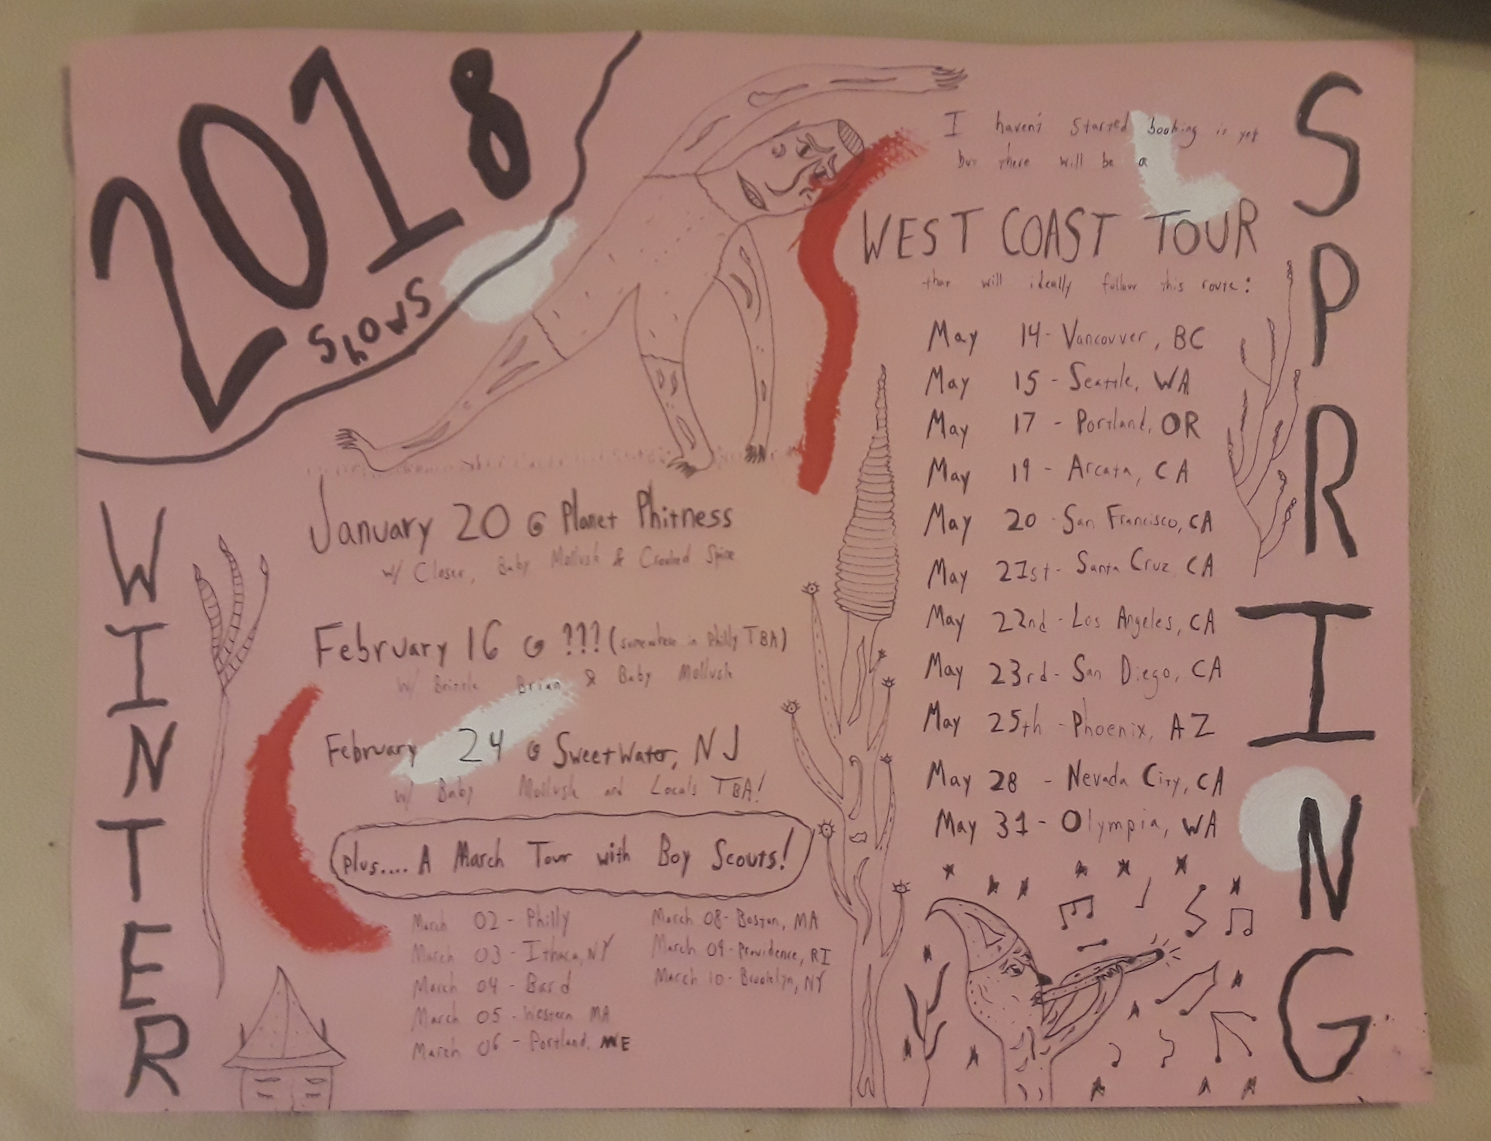 2018
Shows
WINTER
January 20 @ Planet Phitness
w/ Closer, Baby Mollusk & Crooked Spine
February 16 @ ??? (somewhere in Philly TBA)
w/ Brittle Brian & Baby Mollusk
February 24 @ Sweetwater, NJ
w/ Baby Mollusk and Locals TBA!
plus.... A March Tour with Boy Scouts!
March 02 - Philly
March 03 - Ithaca, NY
March 04 - Bard
March 05 - Western MA
March 06 - Portland, ME
March 08 - Boston, MA
March 09 - Providence, RI
March 10 - Brooklyn, NY
SPRING
I haven't started booking it yet
but there will be a
WEST COAST TOUR
that will ideally follow this route:
May 14 - Vancouver, BC
May 15 - Seattle, WA
May 17 - Portland, OR
May 19 - Arcata, CA
May 20 - San Francisco, CA
May 21st - Santa Cruz, CA
May 22nd - Los Angeles, CA
May 23rd - San Diego, CA
May 25th - Phoenix, AZ
May 28 - Nevada City, CA
May 31 - Olympia, WA